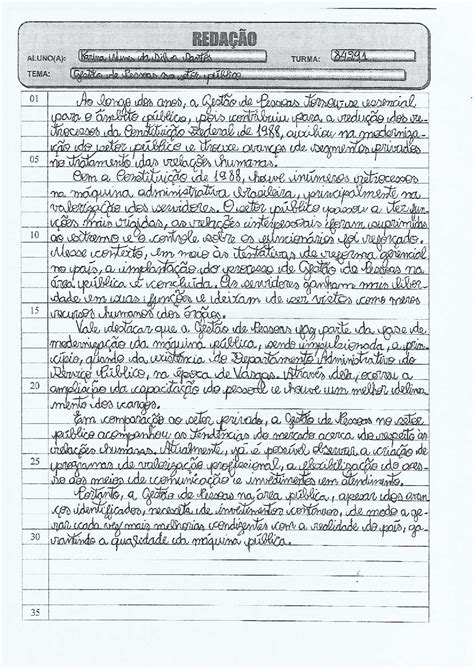 REDAÇÃO
ALUNO(A): Karina Nunes da Silva Dantas TURMA: 84391
TEMA: Gestão de Pessoas no setor público
01 Ao longo dos anos, a Gestão de Pessoas tornou-se essencial
para o âmbito público, pois contribuiu para a redução dos re-
trocessos da Constituição Federal de 1988, auxiliou na moderniza-
ção do setor público e trouxe avanços de segmentos privados
05 no tratamento das relações humanas.
Com a Constituição de 1988, houve inúmeros retrocessos
na máquina administrativa brasileira, principalmente na
valorização dos servidores. O setor público passou a ter fun-
ções mais rígidas, as relações interpessoais foram suprimidas
10 ao extremo e o controle sobre os funcionários foi reforçado.
Nesse contexto, em meio às tentativas de reforma gerencial
no país, a implantação do processo de Gestão de Pessoas na
área pública é concluída. Os servidores ganham mais liber-
dade em suas funções e deixam de ser vistos como meros
15 recursos humanos dos órgãos.
Vale destacar que a Gestão de Pessoas fez parte da fase de
modernização da máquina pública, sendo impulsionada, a prin-
cípio, quando da existência do Departamento Administrativo do
Serviço Público, na época de Vargas. Através dela, ocorreu a
20 ampliação da capacitação do pessoal e houve um melhor delinea-
mento dos cargos.
Em comparação ao setor privado, a Gestão de Pessoas no setor
público acompanhou as tendências do mercado acerca do respeito às
relações humanas. Atualmente, já é possível observar a criação de
25 programas de valorização profissional, a flexibilização de aces-
so aos meios de comunicação e investimentos em atendimento.
Portanto, a Gestão de Pessoas na área pública, apesar dos avan-
ços identificados, necessita de investimentos contínuos, de modo a ge-
rar cada vez mais melhorias condizentes com a realidade do país, ga-
30 rantindo a qualidade da máquina pública.
35